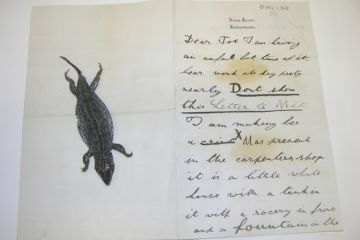 Dear Tot I am having
an awful bad time of it
hear work all day pretty
nearly Dont show
this Letter to Mée
I am making her
a Xmas present
in the carpenters shop
it is a little white
house with a tank in
it with a rocery in front
and a fountain in the